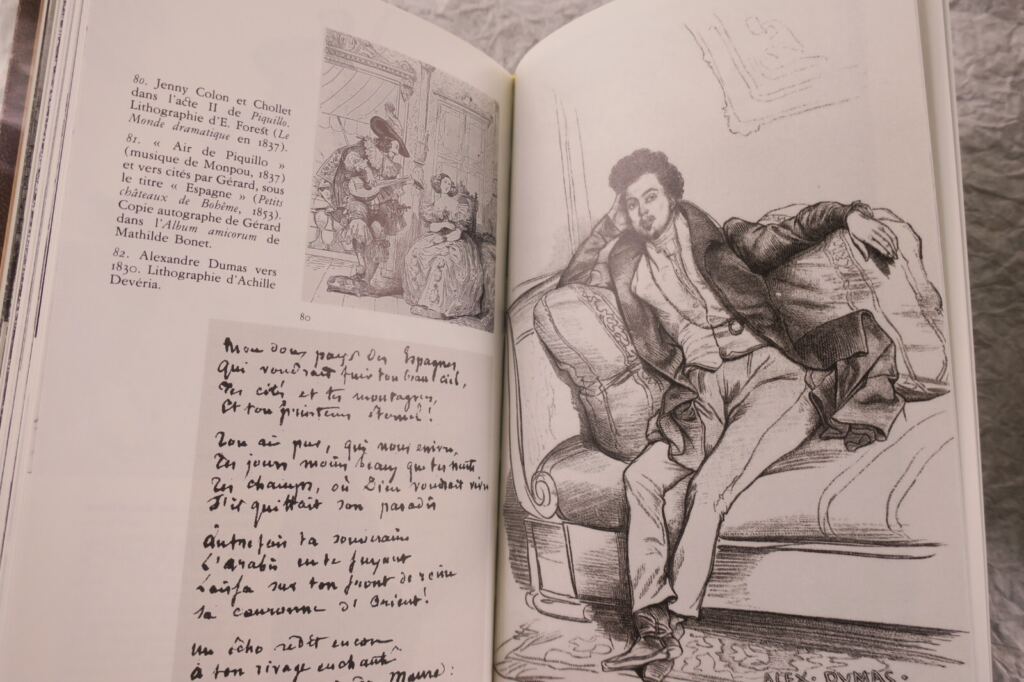 80. Jenny Colon et Chollet
dans l'acte II de Piquillo.
Lithographie d'E. Forest (Le
Monde dramatique en 1837).
81. « Air de Piquillo »
(musique de Monpou, 1837)
et vers cités par Gérard, sous
le titre « Espagne » (Petits
châteaux de Bohême, 1853).
Copie autographe de Gérard
dans l'Album amicorum de
Mathilde Bonet.
82. Alexandre Dumas vers
1830. Lithographie d'Achille
Devéria.
80
Mon doux pays des Espagnes
Qui voudrait fuir ton beau ciel,
Tes cités et tes montagnes,
Et ton printems éternel!
Ton air pur, qui nous enivre,
Tes jours moins beaux que tes nuits
Tes champs, où Dieu voudrait vivre
S'il quittait son paradis
Autrefois ta souveraine
L'Arabie en te fuyant
Laissa sur ton front de reine
Sa couronne d'Orient!
Un écho redit encore
à ton rivage enchanté
Maure:
ALEX. DUMAS.